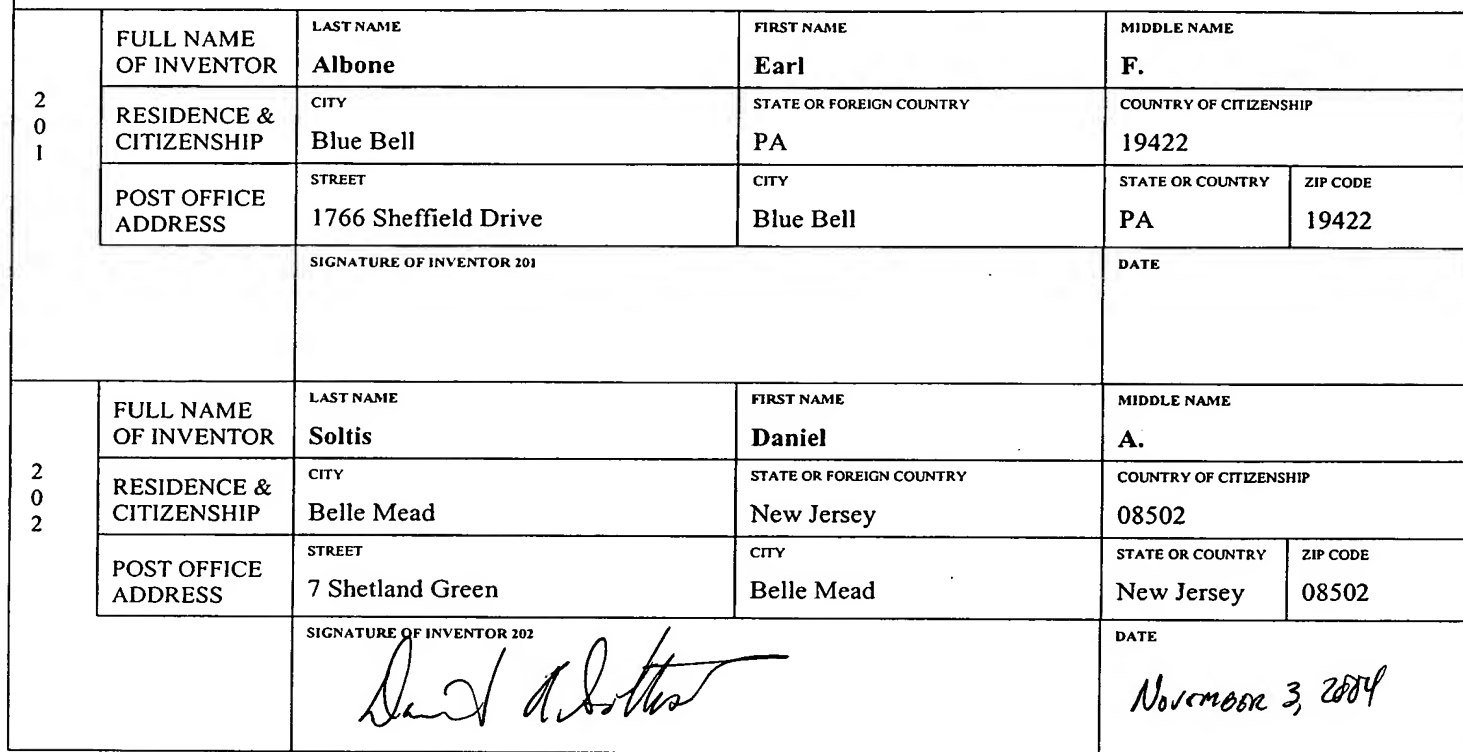 FULL NAME OF INVENTOR
LAST NAME
Albone
FIRST NAME
Earl
MIDDLE NAME
F.
201
RESIDENCE & CITIZENSHIP
CITY
Blue Bell
STATE OR FOREIGN COUNTRY
PA
COUNTRY OF CITIZENSHIP
19422
POST OFFICE ADDRESS
STREET
1766 Sheffield Drive
CITY
Blue Bell
STATE OR COUNTRY
PA
ZIP CODE
19422
SIGNATURE OF INVENTOR 201
DATE
FULL NAME OF INVENTOR
LAST NAME
Soltis
FIRST NAME
Daniel
MIDDLE NAME
A.
202
RESIDENCE & CITIZENSHIP
CITY
Belle Mead
STATE OR FOREIGN COUNTRY
New Jersey
COUNTRY OF CITIZENSHIP
08502
POST OFFICE ADDRESS
STREET
7 Shetland Green
CITY
Belle Mead
STATE OR COUNTRY
New Jersey
ZIP CODE
08502
SIGNATURE OF INVENTOR 202
Daniel A. Soltis
DATE
November 3, 2004